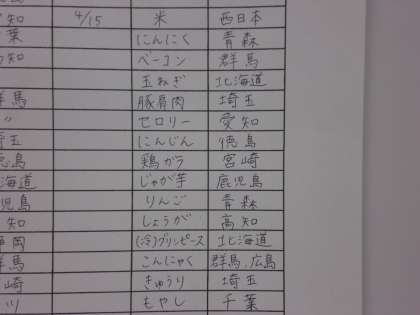 知 4/15 米 西日本
葉 にんにく 青森
知 ベーコン 群馬
玉ねぎ 北海道
群馬 豚肩肉 埼玉
〃 セロリー 愛知
埼玉 にんじん 徳島
徳島 鶏ガラ 宮崎
海道 じゃが芋 鹿児島
児島 りんご 青森
知 しょうが 高知
静岡 (冷)グリンピース 北海道
群馬 こんにゃく 群馬、広島
崎 きゅうり 埼玉
もやし 千葉